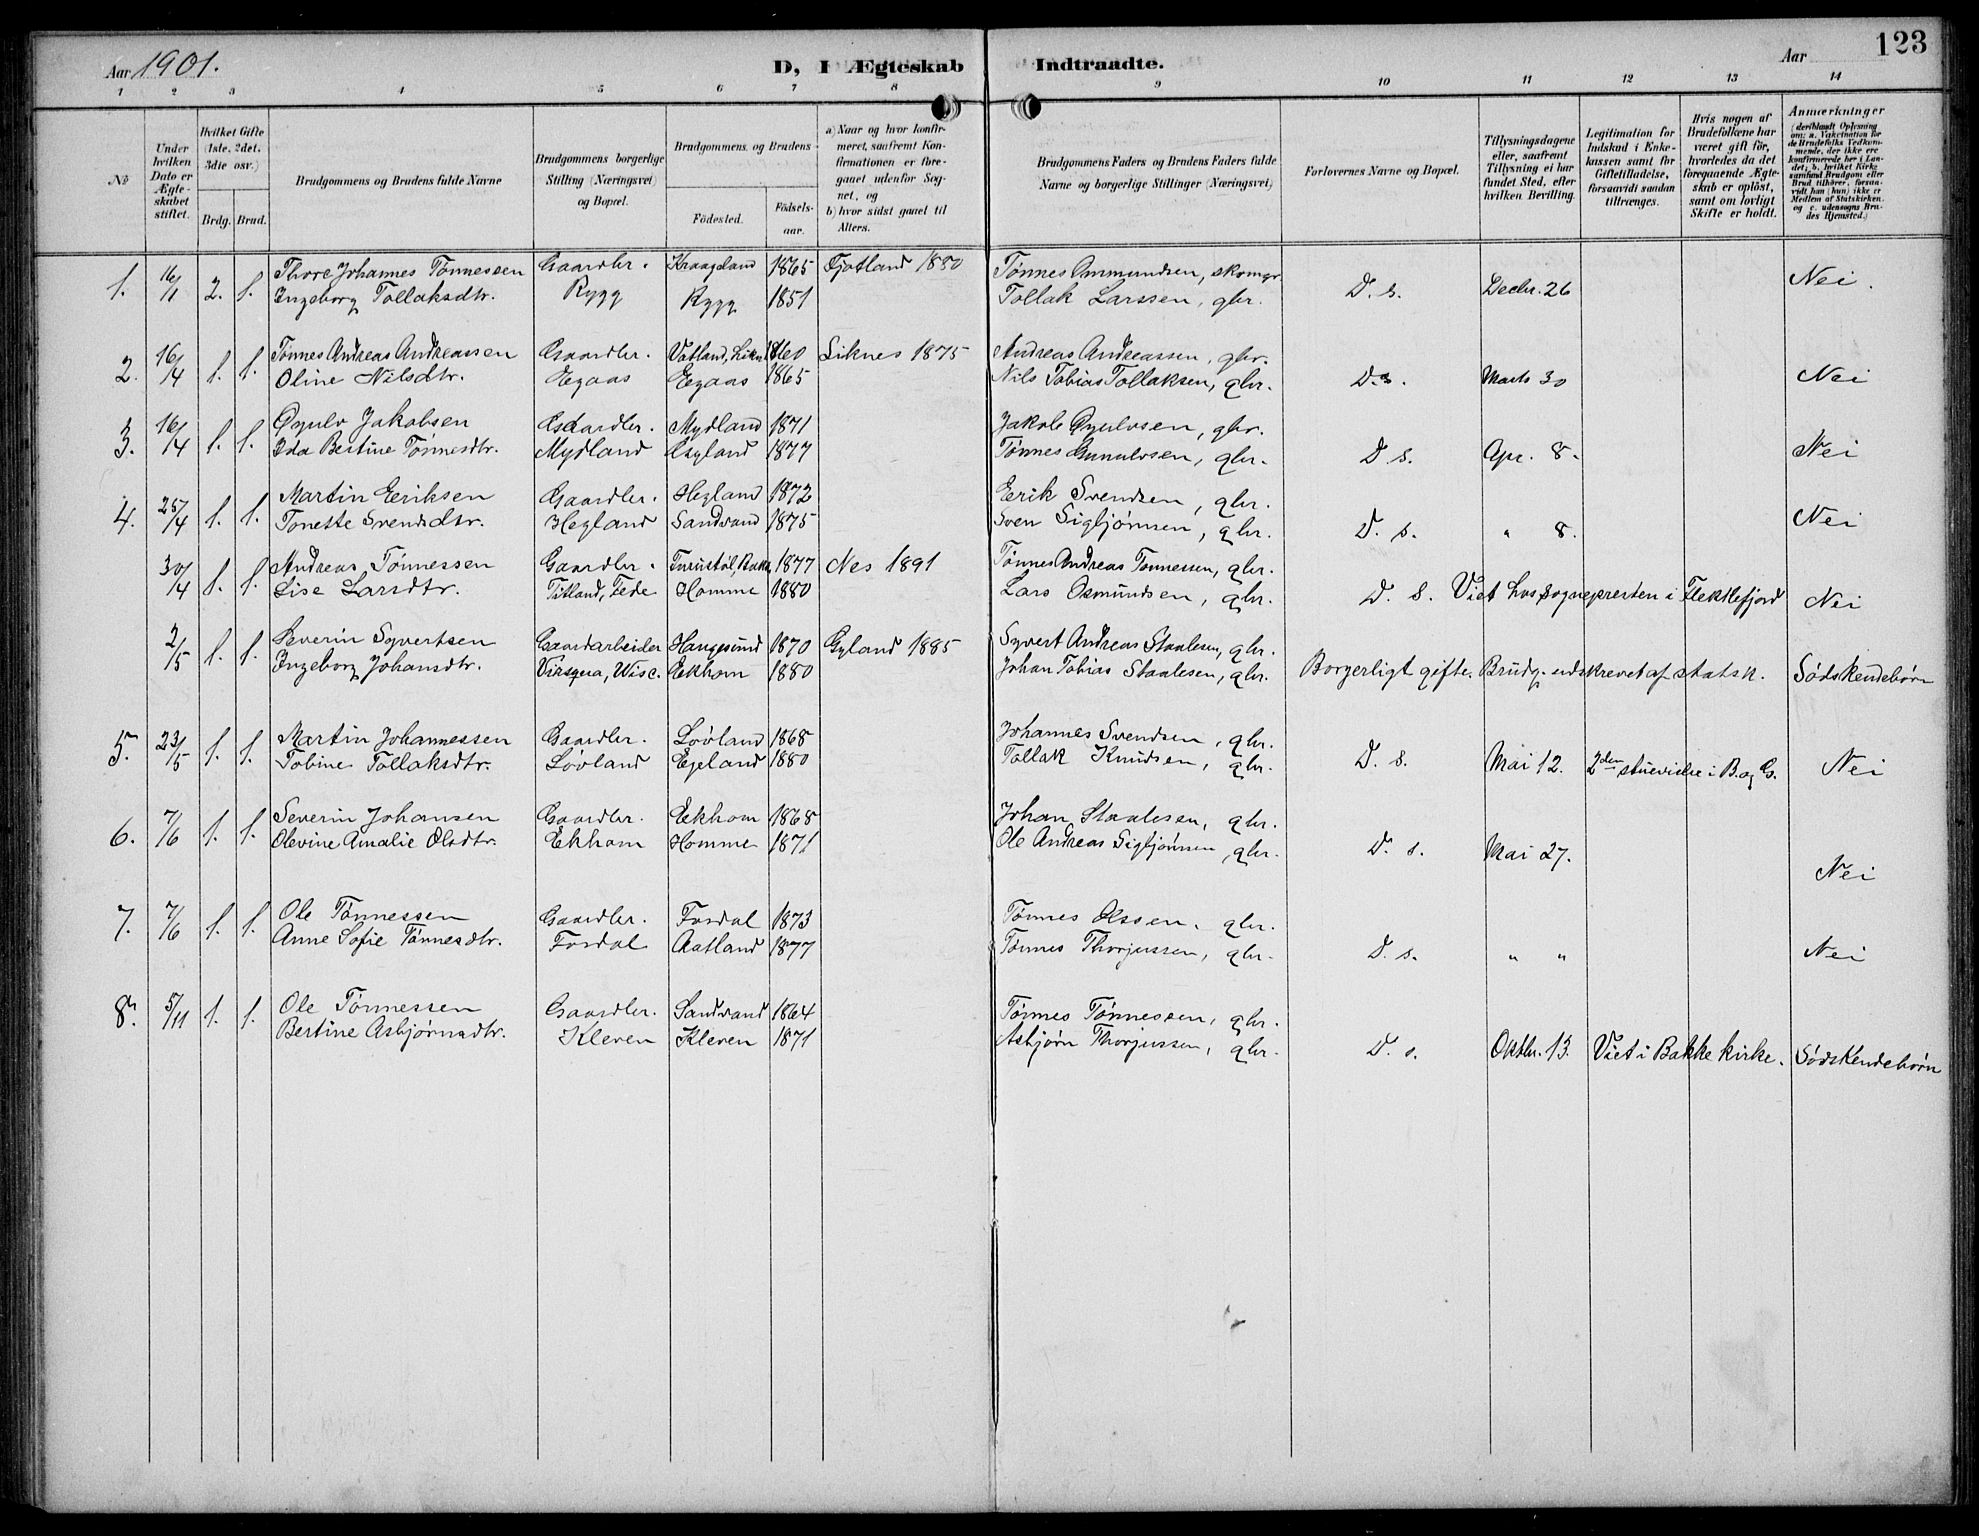 Aar 1901.
D, I Ægteskab Indtraadte.
Aar
123
1 2 3 4 5 6 7 8 9 10 11 12 13 14
No
Under hvilken Dato er Ægteskabet stiftet.
Hvilket Gifte (1ste, 2det, 3die osv.)
Brdg. Brud.
Brudgommens og Brudens fulde Navne
Brudgommens borgerlige Stilling (Næringsvei) og Bopæl.
Brudgommens og Brudens
Födested. Födselsaar.
a) Naar og hvor konfirmeret, saafremt Konfirmationen er foregaaet udenfor Sognet, og
b) hvor sidst gaaet til Alters.
Brudgommens Faders og Brudens Faders fulde Navne og borgerlige Stillinger (Næringsvei)
Forlovernes Navne og Bopæl.
Tillysningsdagene eller, saafremt Tillysning ei har fundet Sted, efter hvilken Bevilling.
Legitimation for Indskud i Enkekassen samt for Giftetilladelse, forsaavidt saadan tiltrænges.
Hvis nogen af Brudefolkene har været gift før, hvorledes da det foregaaende Ægteskab er oplöst, samt om lovligt Skifte er holdt.
Anmærkninger (deriblandt Oplysning om: a. Vaksination for de Brudefolks Vedkommende, der ikke ere konfirmerede her i Landet, b. hvilket Kirkesamfund Brudgom eller Brud tilhörer, forsaavidt han (hun) ikke er Medlem af Statskirken og c. udensogns Brudes Hjemsted.)
1. 16/1 2. 1. Thore Johannes Tønnessen Gaardbr. Kraageland 1865 Fjotland 1880 Tønnes Ammundsen, skomgr
Ingeborg Tollaksdtr. Rygg Rygg 1851 Tollak Larssen, gbr. D. s. Decbr. 26 Nei.
2. 16/4 1. 1. Tønnes Andreas Andreassen Gaardbr. Vatland, Likn. 1860 Liknes 1875 Andreas Andreassen, gbr.
Oline Nilsdtr. Egaas Egaas 1865 Nils Tobias Tollaksen, gbr. D. s. Marts 30 Nei
3. 16/4 1. 1. Øgulv Jakobsen Gaardbr. Mydland 1871 Jakob Øgulvsen, gbr.
Ida Bertine Tønnesdtr. Mydland 1877 Tønnes Gunulvsen, gbr. D s. Apr. 8. Nei
4. 25/4 1. 1. Martin Eeriksen Gaardbr. Hegland 1872 Eerik Svendsen, gbr.
Tonette Svendsdtr. Hegland Sandvand 1875 Sven Sigbjørnsen, gbr. D. s. " 8. Nei
30/4 1. 1. Andreas Tønnessen Gaardbr. 1877 Nes 1891 Tønnes Andreas Tønnessen, gbr.
Lise Larsdtr. Titland, Fede Homme 1880 Lars Osmundsen, gbr. D. s. Viet hos sognepresten i Flekkefjord Nei
2/5 1. 1. Severin Syvertsen Gaardarbeider Haugesund 1870 Gyland 1885 Syvert Andreas Staalesen, gbr.
Ingeborg Johansdtr. Viroqua, Wisc. Eekhom 1880 Johan Tobias Staalesen, gbr. Borgerligt gifte. Brudg. udskrevet af statsk. Sødskendebørn
5. 23/5 1. 1. Martin Johannessen Gaardbr. Løvland 1868 Johannes Svendsen, gbr.
Tobine Tollaksdtr. Løvland Egeland 1880 Tollak Knudsen, gbr. D. s. Mai 12. 2den stuevielse i B. og G. Nei
6. 7/6 1. 1. Severin Johansen Gaardbr. Eekhom 1868 Johan Staalesen, gbr.
Olevine Amalie Olsdtr. Eekhom Homme 1871 Ole Andreas Sigbjørnsen, gbr. D. s. Mai 27. Nei
7. 7/6 1. 1. Ole Tønnessen Gaardbr. Fosdal 1873 Tønnes Olssen, gbr.
Anne Sofie Tønnesdtr. Fosdal Aatland 1877 Tønnes Thorjussen, gbr. D. s. " " Nei
8. 5/11 1. 1. Ole Tønnessen Gaardbr. Sandvand 1864 Tønnes Tønnessen, gbr.
Bertine Asbjørnsdtr. Kleven Kleven 1871 Asbjørn Thorjussen, gbr. D. s. Oktbr. 13. Viet i Bakke kirke. Sødskendebørn